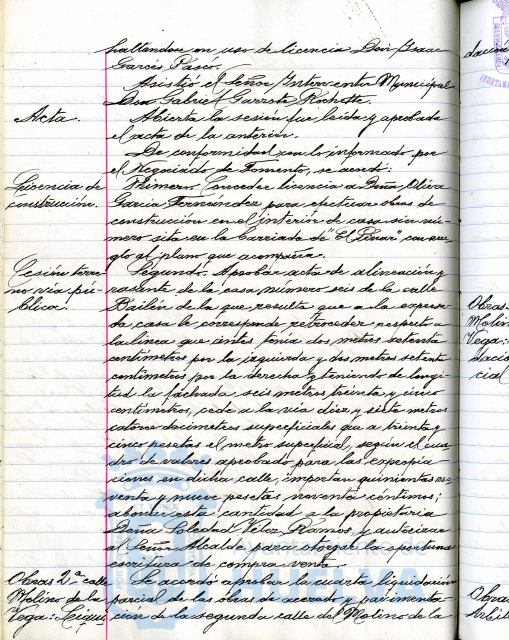 hallándose en uso de licencia Don Isaac
Garcés Pasco.
Asistió el Señor Interventor Municipal
Don Gabriel Garrote Rochette.
Acta.
Abierta la sesión fue leída y aprobada
el acta de la anterior.
De conformidad con lo informado por
el Negociado de Fomento, se acordó:
Licencia de
construcción.
Primero. Conceder licencia a Doña Oliva
García Fernández para efectuar obras de
construcción en el interior de casa sin nú-
mero sita en la barriada de "El Pinar" con arre-
glo al plano que acompaña.
Cesión terre-
no vía pú-
blica.
Segundo. Aprobar acta de alineación y
rasante de la casa número seis de la calle
Bailén de la que resulta que a la expresa-
da casa le corresponde retroceder, respecto a
la línea que antes tenía dos metros setenta
centímetros por la izquierda y dos metros setenta
centímetros por la derecha y teniendo de longi-
tud la fachada, seis metros treinta y cinco
centímetros, cede a la vía diez y siete metros
catorce decímetros superficiales que a treinta y
cinco pesetas el metro superficial, según el cua-
dro de valores aprobado para las expropia-
ciones en dicha calle, importan quinientas no-
venta y nueve pesetas noventa céntimos;
abonar esta cantidad a la propietaria
Doña Soledad Vélez Ramos, y autorizar
al Señor Alcalde para otorgar la oportuna
escritura de compra venta.
Obras 2ª calle
Molino de la
Vega: Liqui
Se acordó aprobar la cuarta liquidación
parcial de las obras de acerado y pavimenta-
ción de la segunda calle del Molino de la
dación
Obras
Molino
Vega:
dacio
cial
Obras
HUELVA